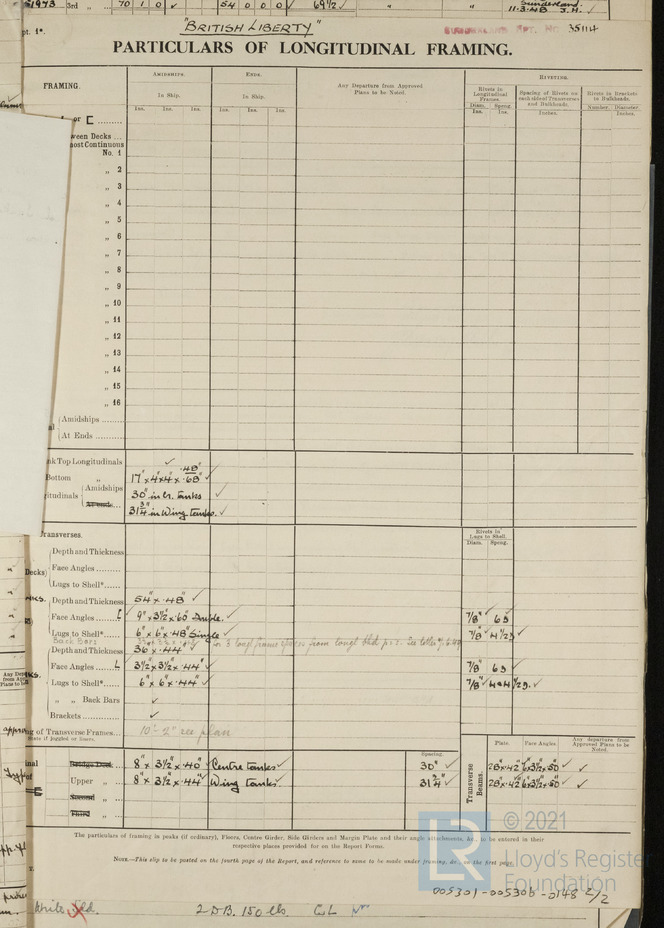 51973 3rd „ 70 1 0 ✓ 54 0 0 0 ✓ 69½ ✓ „ „ Sunderland
11-3-48 J.H. ✓
pt. 1*. "BRITISH LIBERTY" SUNDERLAND RPT. No 35114
PARTICULARS OF LONGITUDINAL FRAMING.
FRAMING. AMIDSHIPS. ENDS. Any Departure from Approved Plans to be Noted. RIVETING.
In Ship. In Ship. Rivets in Longitudinal Frames. Spacing of Rivets on each side of Transverses and Bulkheads. Rivets in Brackets to Bulkheads.
Diam. Spcng. Number. Diameter.
Ins. Ins. Ins. Ins. Ins. Ins. Ins. Inches. Inches.
or [ ........
ween Decks ...
most Continuous
No. 1
„ 2
„ 3
„ 4
„ 5
„ 6
„ 7
„ 8
„ 9
„ 10
„ 11
„ 12
„ 13
„ 14
„ 15
„ 16
Amidships ........
al
At Ends ..........
nk Top Longitudinals ✓
Bottom „ 17" x 4" x 4" x .48" .68" ✓
gitudinals Amidships 30" in Cr. Tanks ✓
At Ends... 31¾" in Wing Tanks. ✓
Transverses. Rivets in Lugs to Shell.
Diam. Spcng.
Depth and Thickness
Face Angles ......
Decks)
Lugs to Shell*......
Depth and Thickness 54 x .48" ✓
Face Angles ...... [ 9" x 3½" x .60" ✓ 7/8" ✓ 6½
Lugs to Shell*...... 6" x 6" x .48" Single ✓ 7/8" ✓
Back Bars
Depth and Thickness 36 x .44" ✓
Face Angles ...... L 3½" x 3½" x .44" ✓ 7/8" ✓ 6½
Lugs to Shell*...... 6" x 6" x .44" ✓ 7/8" ✓
„ „ Back Bars ✓
Brackets ........... ✓
ng of Transverse Frames... 10'-2" see plan
Rivets if joggled or liners.
Spacing. Plate. Face Angles. Any departure from Approved Plans to be Noted.
inal Bridge Deck... 8" x 3½" x .40" ✓ Centre tanks ✓ 30" ✓ Transverse Beams. 28" x .42" 6" x 3½" x .50" ✓ ✓
Upper „ ... 8" x 3½" x .44" ✓ Wing tanks ✓ 31¾" ✓ 28" x .42" 6" x 3½" x .50" ✓ ✓
Second „ ...
Third „ ...
The particulars of framing in peaks (if ordinary), Floors, Centre Girder, Side Girders and Margin Plate and their angle attachments, &c., to be entered in their
respective places provided for on the Report Forms.
NOTE.—This slip to be posted on the fourth page of the Report, and reference to same to be made under framing, &c., on the first page.
LR © 2021
Lloyd's Register
Foundation
005301-005306-0148 2/2
2 DB. 150 lbs. CL